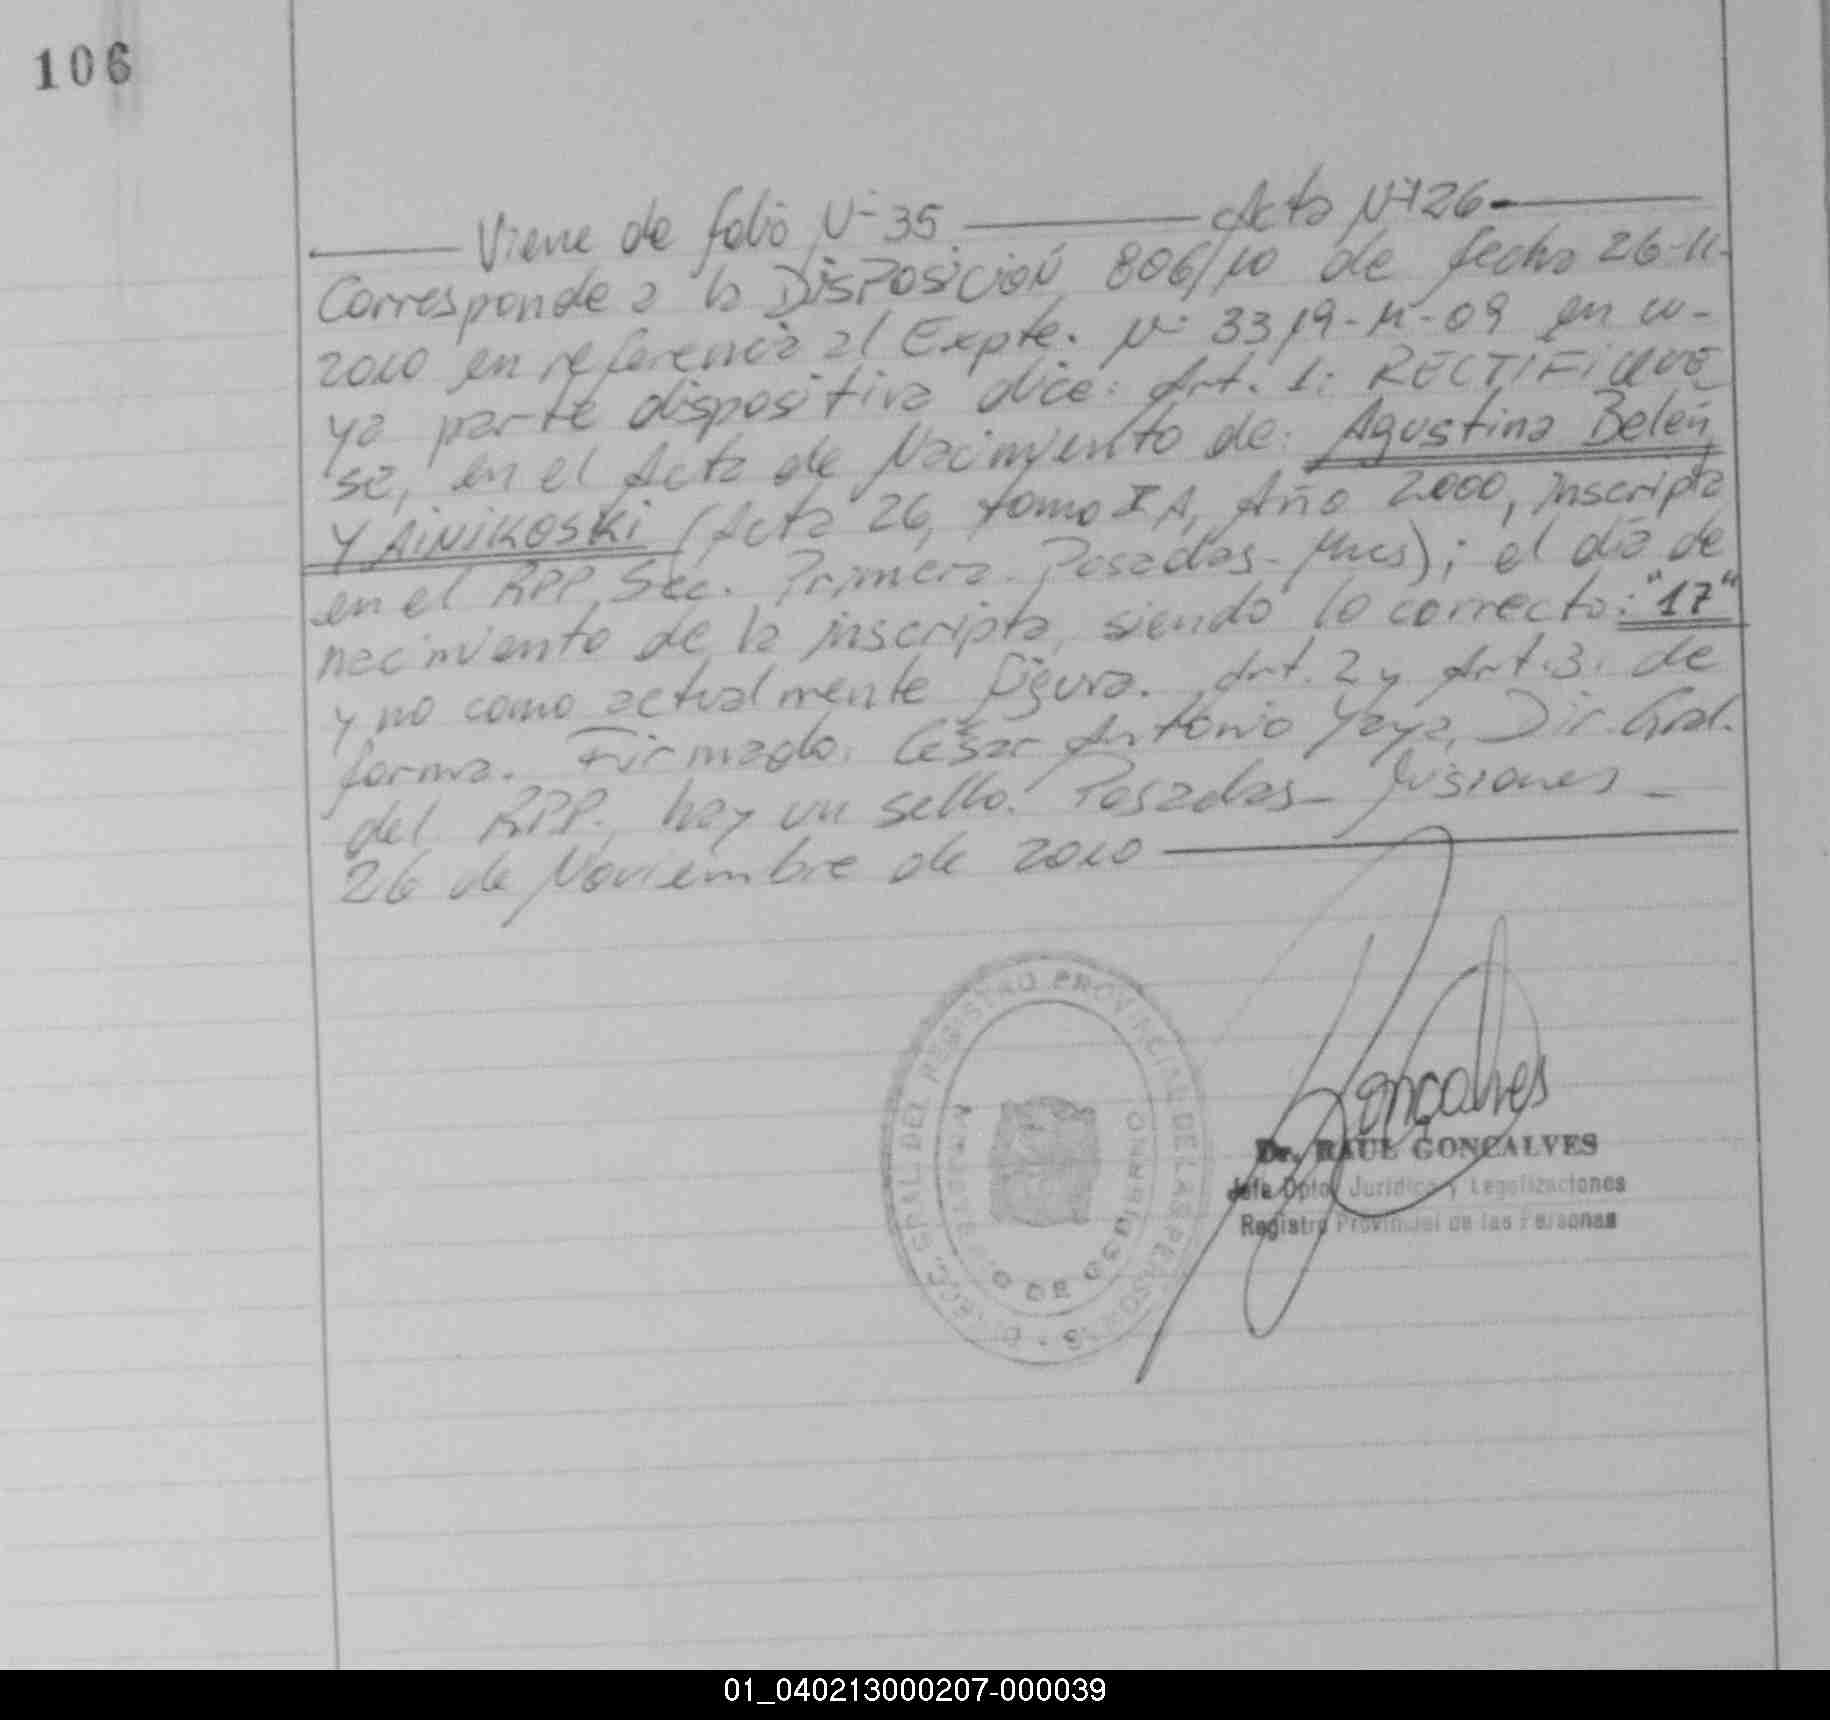 106
Viene de folio Nº 35 Acta Nº 26
Corresponde a la DISPOSICIÓN 806/10 de fecha 26-11-
2010 en referencia al Expte. Nº 3319-M-09 en cu-
ya parte dispositiva dice: Art. 1: RECTIFIQUE
se, en el Acta de Nacimiento de: Agustina Belén
YAINIKOSKI (Acta 26, tomo IA, Año 2000, inscripta
en el RPP Sec. Primera. Posadas- Mnes); el día de
nacimiento de la inscripta, siendo lo correcto: "17"
y no como actualmente figura. Art. 2 y Art. 3. de
forma. Firmado. César Antonio Yaya, Dir. Gral.
del RPP. hay un sello. Posadas- Misiones-
26 de Noviembre de 2010
DIRECC. GRAL DEL REGISTRO PROVINCIAL DE LAS PERSONAS
MINISTERIO DE GOBIERNO
Gonçalves
Dr. RAUL GONCALVES
Jefe Dpto. Jurídico y Legalizaciones
Registro Provincial de las Personas
01_040213000207-000039